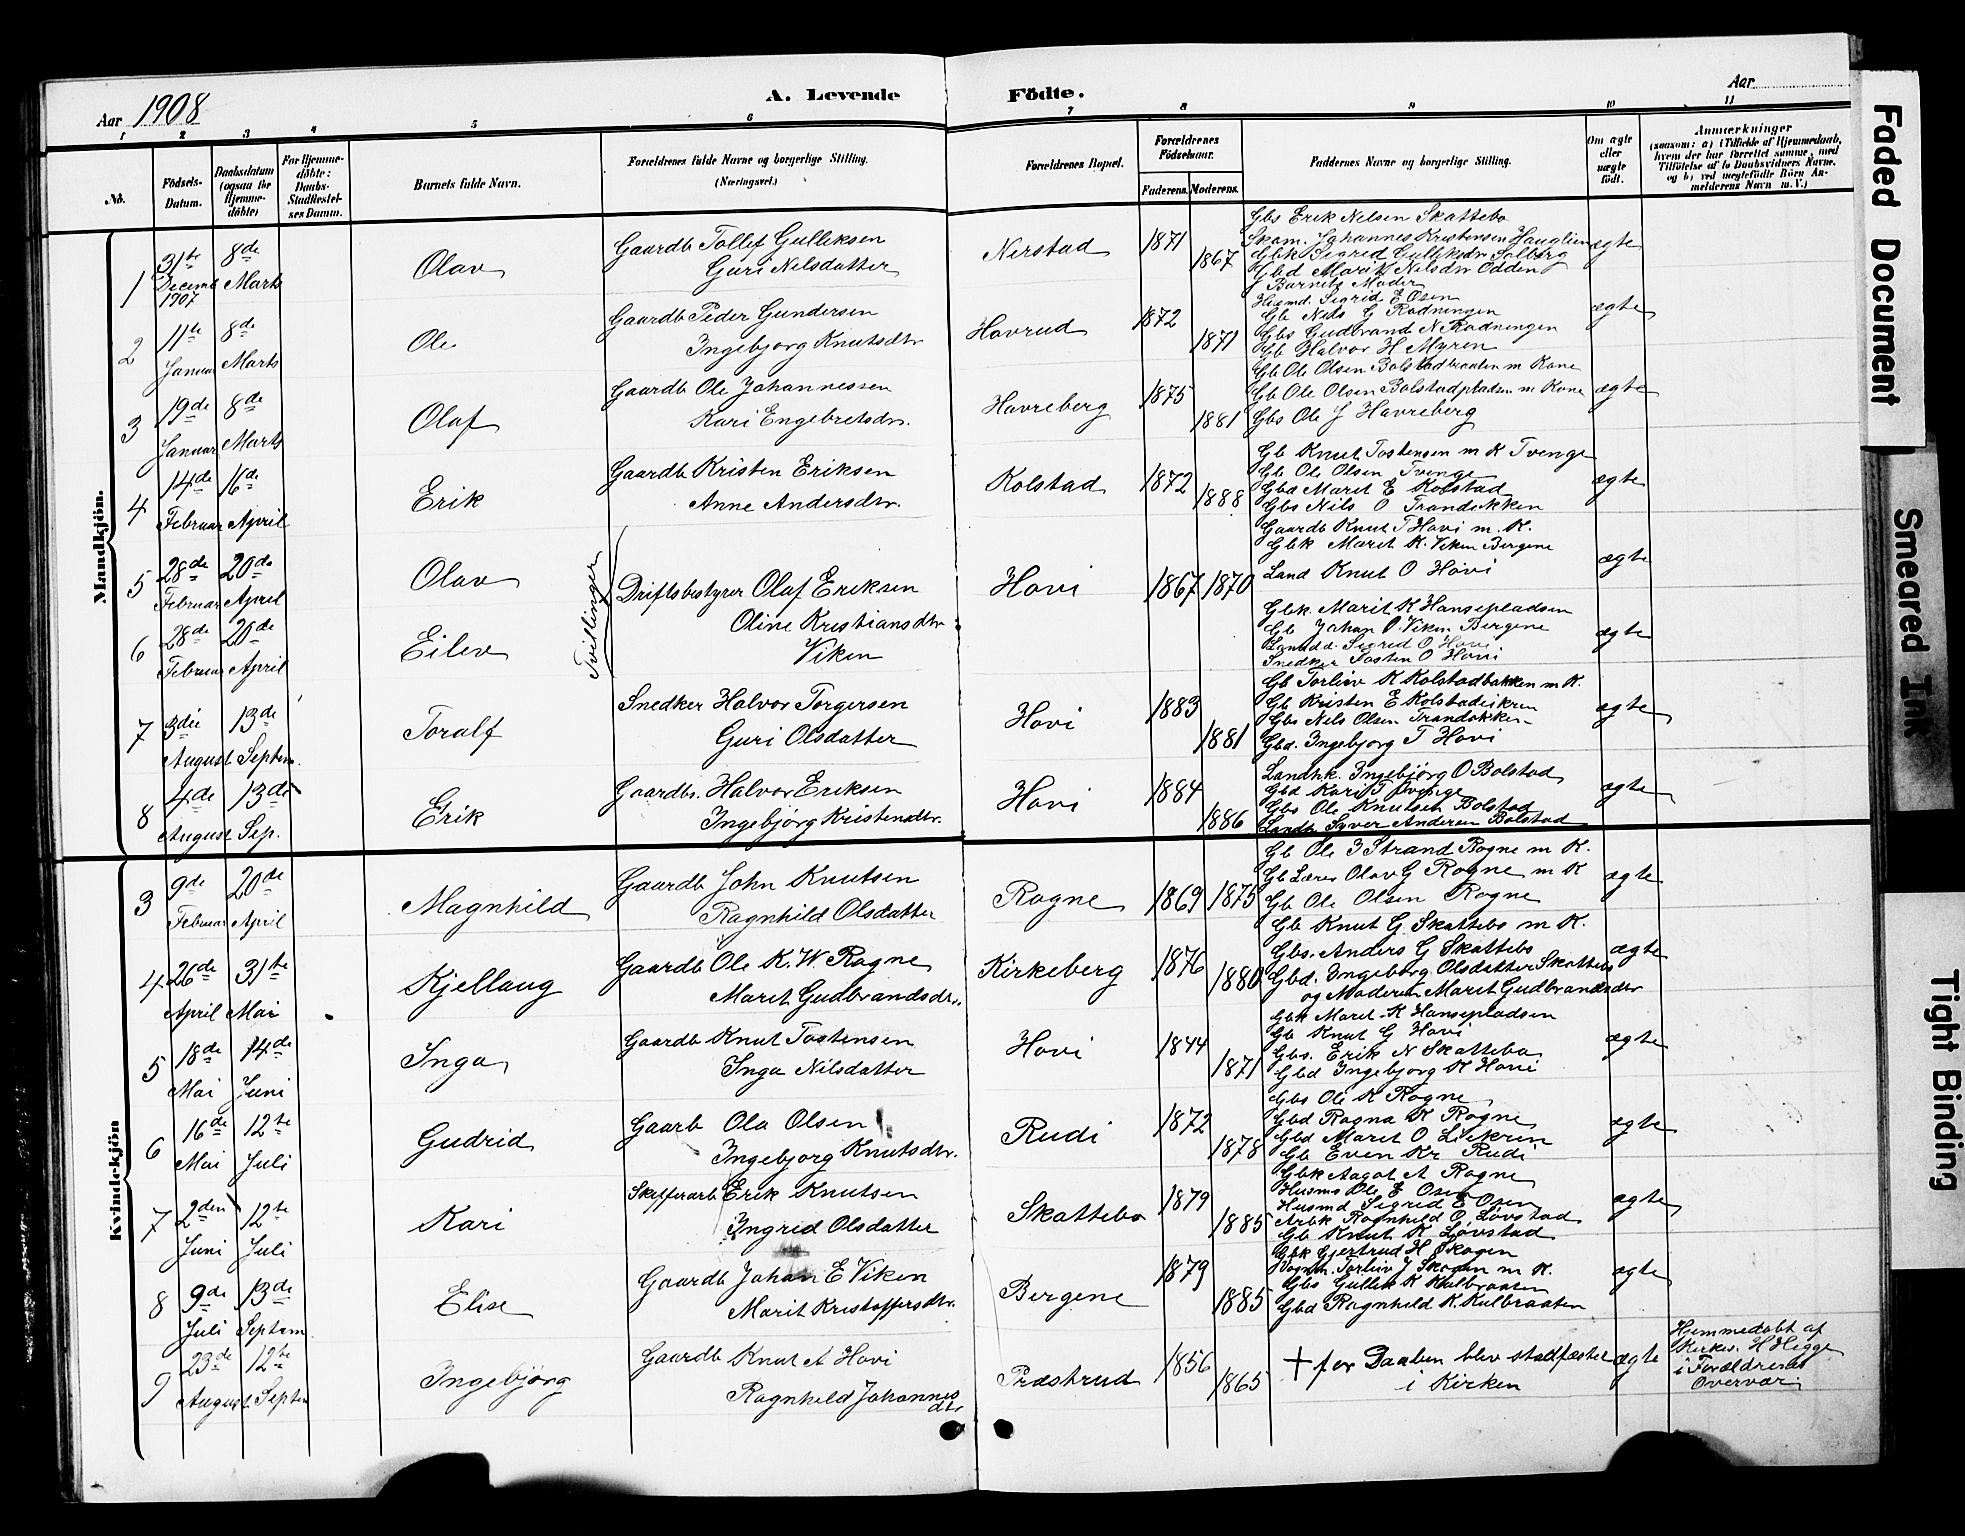 Aar 1908
A. Levende Födte.
Aar
1 2 3 4 5 6 7 8 9 10 11
No.
Födsels-Datum.
Daabsdatum (ogsaa for Hjemmedöbte)
For Hjemmedöbte: Daabs-Stadfæstelses Datum.
Barnets fulde Navn.
Forældrenes fulde Navne og borgerlige Stilling. (Næringsvei.)
Forældrenes Bopæl.
Forældrenes Födselsaar.
Faderens. Moderens.
Faddernes Navne og borgerlige Stilling.
Om ægte eller uægte födt.
Anmærkninger
(saasom: a) i Tilfælde af Hjemmedaab, hvem der har forrettet samme, med Tilföielse af to Daabsvidners Navne, og b) ved uægtefödte Börn Anmelderens Navn m. V.)
Mandkjön.
1 31te Decemb 1907 8de Marts Olav
Gaardb Tollef Gulliksen
Guri Nilsdatter
Nerstad 1871 1867
Gbs Erik Nilsen Skattebo
Skom. Johannes Kristensen Hauglien
Gbk Sigrid Gulliksdtr Solberg
Gbd Marit Nilsdtr Odden
Barnets Moder
ægte
2 11te Januar 8de Marts Ole
Gaardb Peder Gundersen
Ingebjorg Knutsdtr
Havrud 1872 1871
Husmd. Sigrid E Osen
Gb Nils G Rodningen
Gbs Gudbrand N Rodningen
Gb Halvor H Myren
ægte
3 19de Januar 8de Marts Olaf
Gaardb Ole Johannessen
Kari Engebretsdtr.
Havreberg 1875 1881
Gb Ole Olsen Bolstadbraaten m Kone
Gb Ole Olsen Bolstadpladsen m Kone
Gbs Ole J Havreberg
ægte
4 14de Februar 16de April Erik
Gaardb Kristen Eriksen
Anne Andersdtr.
Kolstad 1872 1888
Gb Knut Tostensen m K Tvenge
Gb Ole Olsen Tvenge
Gbd Marit E Kolstad
Gbs Nils O Trandokken
ægte
5 28de Februar 20de April Olav
Tvillinger
Driftsbestyrer Olaf Eriksen
Oline Kristiansdtr
Viken
Hovi 1867 1870
Gaardb Knut T Hovi m. K.
Gbk Marit K. Viken Bergene
Land Knut O Hovi
ægte
6 28de Februar 20de April Eilev
Gbk. Marit K Hansepladsen
Gb Johan O. Viken Bergene
Landd. Sigrid O Hovi
Snedker Tosten O Hovi
ægte
7 3die August 13de Septem. Toralf
Snedker Halvor Torgersen
Guri Olsdatter
Hovi 1883 1881
Gb Torleiv K Kolstadbakken m K.
Gb Kristen E Kolstadeikren
Gbs Nils Olsen Trandokken
Gbd. Ingebjorg T Hovi
ægte
8 4de August 13de Sep. Erik
Gaardbs. Halvor Eriksen
Ingebjörg Kristensdtr.
Hovi 1884 1886
Landhk. Ingebjörg O Bolstad
Gbd Kari T Tvenge
Gbs Ole Knutsen Bolstad
Landb Syver Andersen Bolstad
ægte
Kvindekjön
3 9de Februar 20de April Magnhild
Gaardb John Knutsen
Ragnhild Olsdatter
Rogne 1869 1875
Gb Ole I Strand Rogne m K.
Gb Lærer Olav G Rogne m K
Gb Ole Olsen Rogne
ægte
4 26de April 31te Mai Kjellaug
Gaardb Ole K. W. Rogne
Marit Gudbrandsdtr.
Kirkeberg 1876 1880
Gb Knut G Skattebo m K.
Gbs. Anders G Skattebo
Gbd. Ingeborg Olsdatter Skattebo
og Moderen Marit Gudbrandsdtr
ægte
5 18de Mai 14de Juni Inga
Gaardb Knut Tostensen
Inga Nilsdatter
Hovi 1844 1871
Gbk Marit K Hansepladsen
Gb Knut G Hovi
Gbs. Erik N Skattebo
Gbd Ingebjorg K Hovi
ægte
6 16de Mai 12te Juli Gudrid
Gaarb Ola Olsen
Ingebjorg Knutsdtr.
Rudi 1872 1878
Gbs Ole K Rogne
Gbd Ragna K Rogne
Gbd Marit O Liekren
Gb Even Kr Rudi
ægte
7 2den Juni 12te Juli Kari
Skiferarb Erik Knutsen
Ingrid Olsdatter
Skattebo 1879 1885
Gbk Aagot A Rogne
Husms Ole E Osen
Husmd Sigrid E Osen
Arbk Ragnhild O. Lövstad
Gb Knut K Lövstad
ægte
8 9de Juli 13de Septem Elise
Gaardb Johan E Viken
Marit Kristoffersdtr.
Bergene 1879 1885
Gbk Gjertrud H Skogen
Vognm. Torleiv J Skogen m K.
Gbs Gullik K Kulbraaten
Gbd Ragnhild K. Kulbraaten
ægte
9 23de August 12te Septem Ingebjörg
Gaardb Knut A Hovi
Ragnhild Johannesdtr
Præstrud 1856 1865
+ før Daaben blev stadfæstet
i Kirken
ægte
Hjemmedøbt af
Kirkes. H Hegge
i Forældrenes
Overvær.
Faded Document
Smeared Ink
Tight Binding